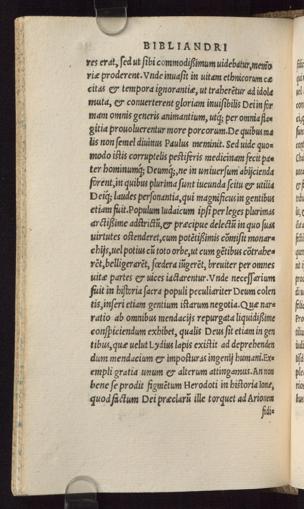 BIBLIANDRI
res erat, sed ut sibi commodißimum uidebatur, memo
riæ proderent. Vnde inuasit in uitam ethnicorum cæ
citas & tempora ignorantiæ, ut traherẽtur ad idola
muta, & conuerterent gloriam inuisibilis Dei in for
mam omnis generis animantium, utq; per omnia fla
gitia prouoluerentur more porcorum. De quibus ma
lis non semel diuinus Paulus meminit. Sed uide quo-
modo istis corruptelis pestiferis medicinam fecit pa
ter hominumq; Deumq;, ne in uniuersum abijcienda
forent, in quibus plurima sunt iucunda scitu & utilia
Deiq; laudes personantia, qui magnificus in gentibus
etiam fuit. Populum Iudaicum ipsi per leges plurimas
arctißime adstrictũ, & præcipue delectũ in quo suas
uirtutes ostenderet, cum potẽtißimis cõmisit monar-
chijs, uel potius cũ toto orbe, ut cum gẽtibus cõtrahe-
rẽt, belligerarẽt, fœdera iũgerẽt, breuiter per omnes
uitæ partes & uices iactarentur. Vnde necessarium
fuit in historia sacra populi peculiariter Deum colen
tis, inseri etiam gentium istarum negotia. Quæ nar-
ratio ab omnibus mendacijs repurgata liquidißime
conspiciendum exhibet, qualis Deus sit etiam in gen
tibus, quæ uelut Lydius lapis existit ad deprehenden
dum mendacium & imposturas ingenij humani. Ex-
empli gratia unum & alterum attingamus. An non
bene se prodit figmẽtum Herodoti in historia Ionæ,
quod factum Dei præclarũ ille torquet ad Arionem
fidi-